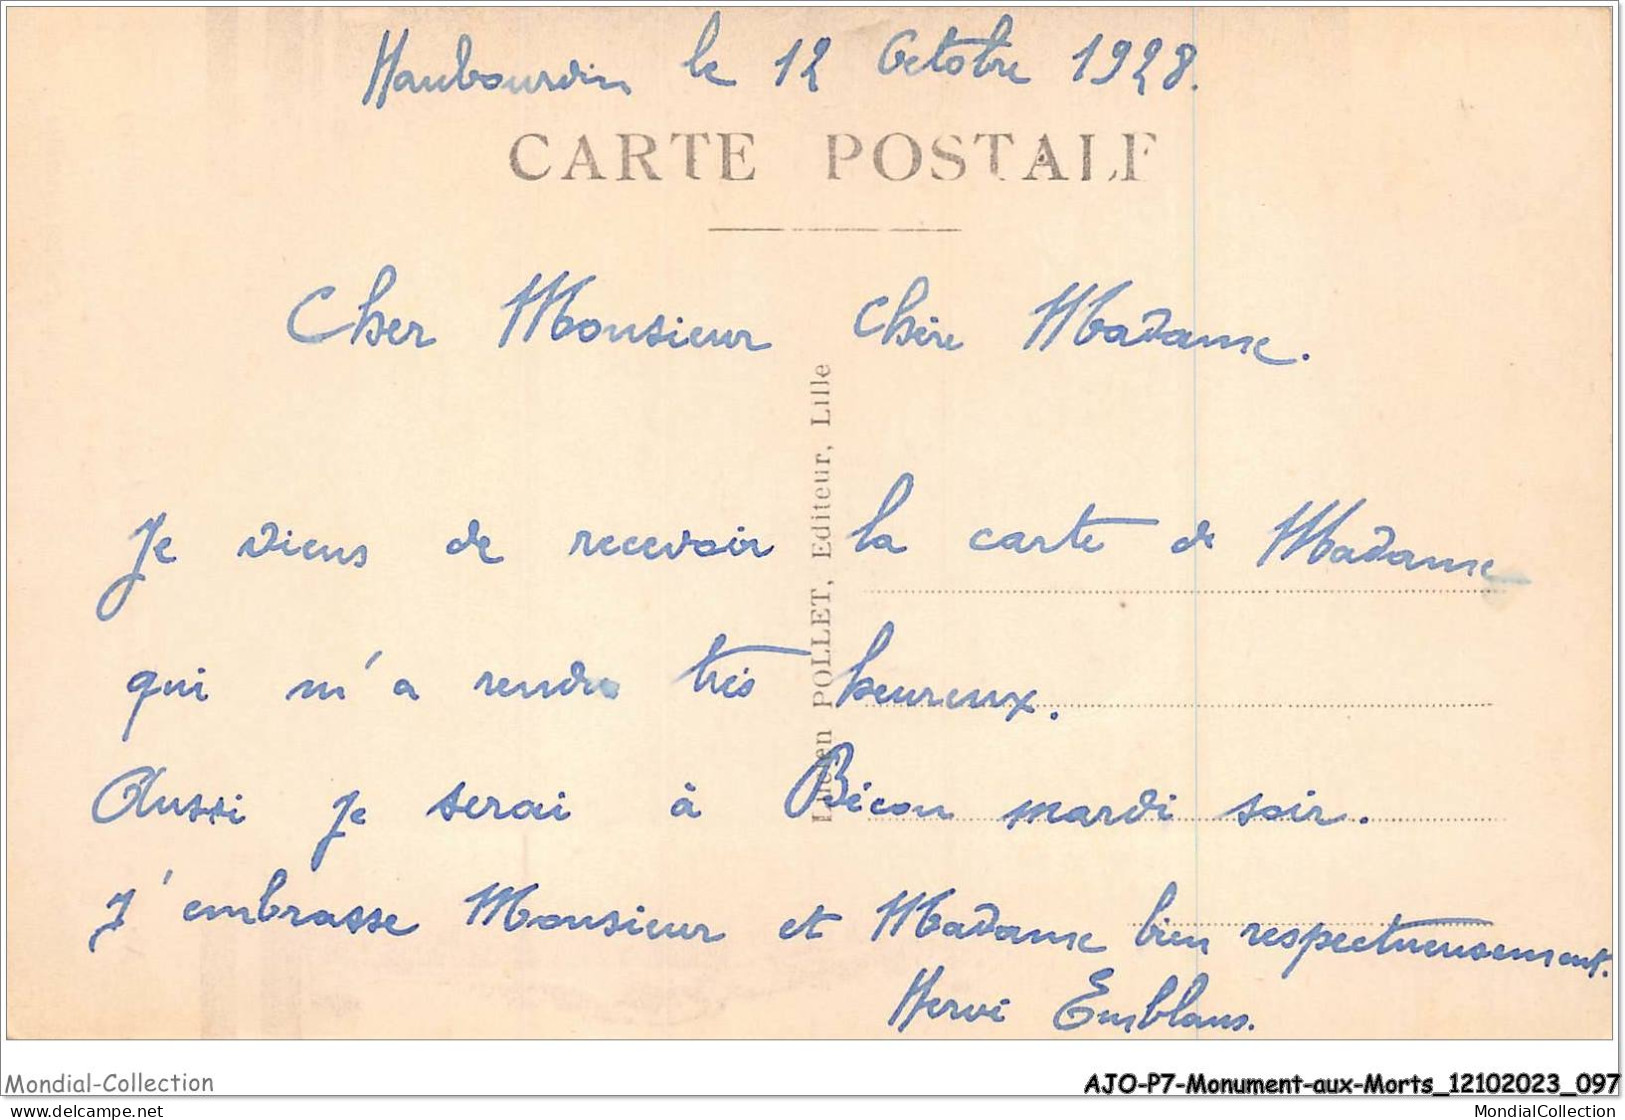 Haubourdin le 12 Octobre 1928.
CARTE POSTALE
Cher Monsieur Chère Madame.
Lucien POLLET, Editeur, Lille
Je viens de recevoir la carte de Madame
qui m'a rendu très heureux.
Aussi je serai à Bécon mardi soir.
J'embrasse Monsieur et Madame bien respectueusement.
Hervé Emblans.
Mondial-Collection
AJO-P7-Monument-aux-Morts_12102023_097
www.delcampe.net
MondialCollection